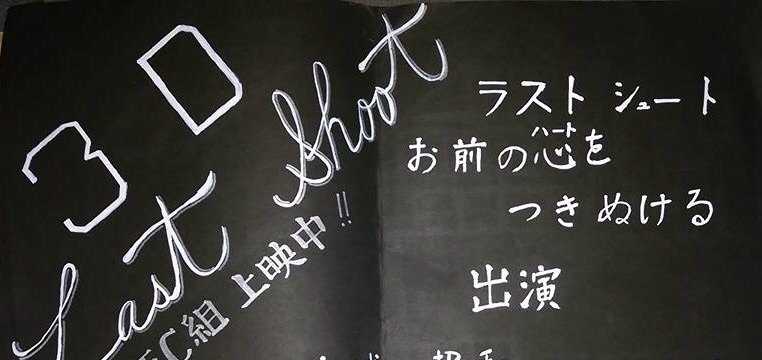 3D
Last Shoot
C組 上映中!!
ラスト シュート
お前の心(ハート)を
つきぬける
出演